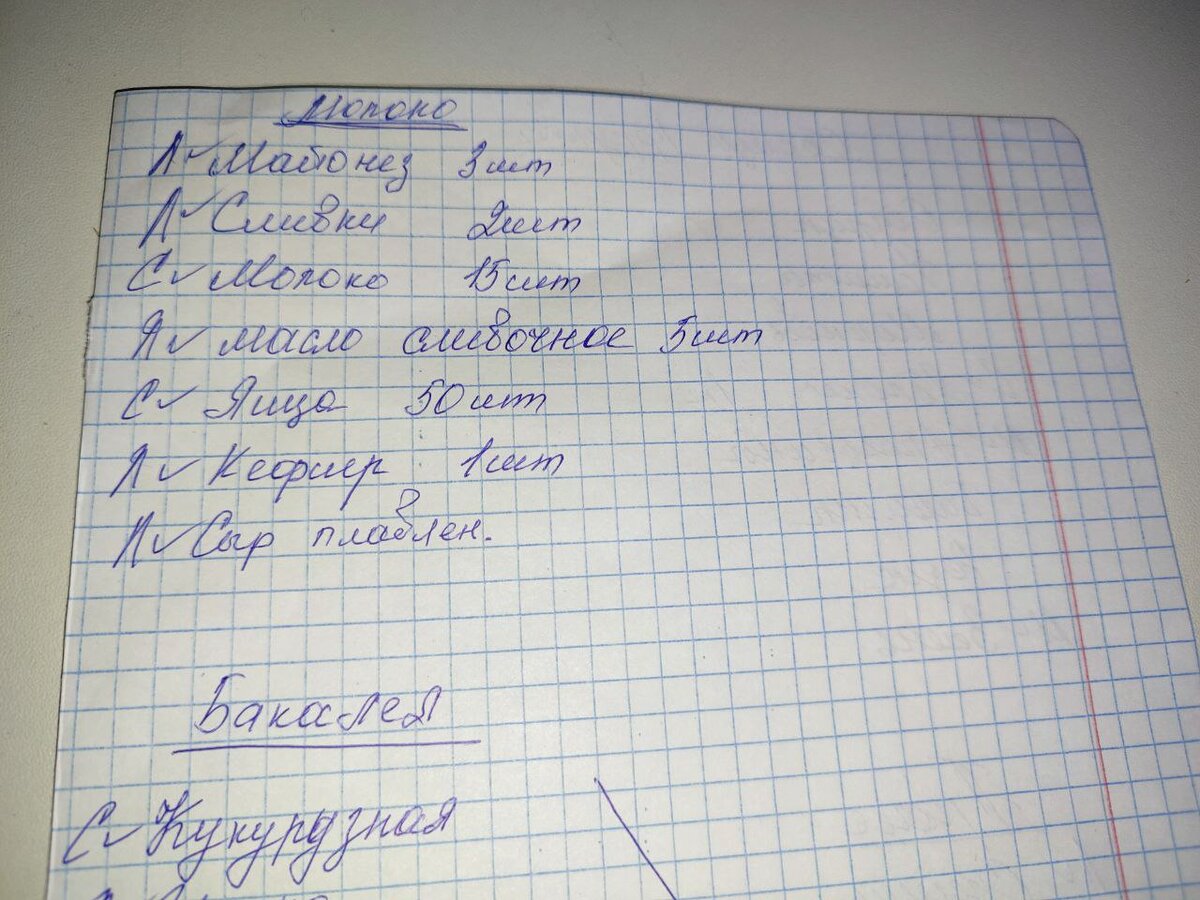 Молоко
Л✓ Майонез 3 шт
Л✓ Сливки 2 шт
С✓ Молоко 15 шт
Л✓ масло сливочное 5 шт
С✓ Яица 50 шт
Л✓ Кефир 1 шт
Л✓ Сыр плавлен.
Бакалея
С✓ Кукурдзная